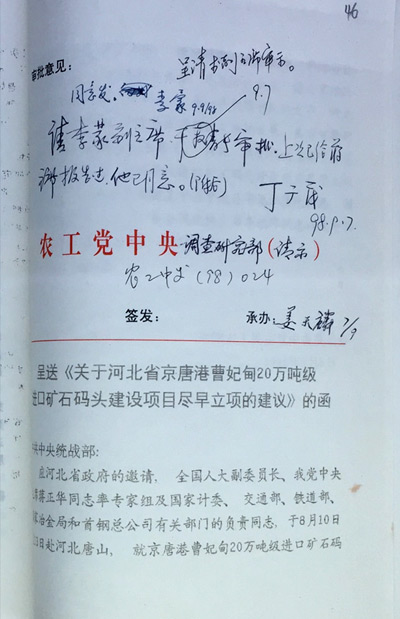 46
审批意见：
呈清书副主席审示。
同意发。李蒙 9.9/98
9.7
请李蒙副主席、审批，上次已给蒋
主席报告过，他已同意。
98.9.7.
农工党中央调查研究部（请示）
农工中发（98）024
签发： 承办：姜天麟 7/9
呈送《关于河北省京唐港曹妃甸20万吨级
进口矿石码头建设项目尽早立项的建议》的函
共中央统战部：
应河北省政府的邀请， 全国人大副委员长、我党中央
蒋正华同志率专家组及国家计委、 交通部、铁道部、
冶金局和首钢总公司有关部门的负责同志，于8月10日
3日赴河北唐山， 就京唐港曹妃甸20万吨级进口矿石码